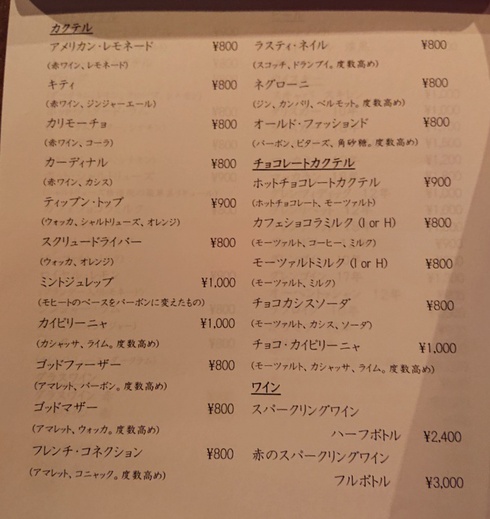 カクテル
アメリカン・レモネード ¥800
(赤ワイン、レモネード)
キティ ¥800
(赤ワイン、ジンジャーエール)
カリモーチョ ¥800
(赤ワイン、コーラ)
カーディナル ¥800
(赤ワイン、カシス)
ティップン・トップ ¥900
(ウォッカ、シャルトリューズ、オレンジ)
スクリュードライバー ¥800
(ウォッカ、オレンジ)
ミントジュレップ ¥1,000
(モヒートのベースをバーボンに変えたもの)
カイピリーニャ ¥1,000
(カシャッサ、ライム。度数高め)
ゴッドファーザー ¥800
(アマレット、バーボン。度数高め)
ゴッドマザー ¥800
(アマレット、ウォッカ。度数高め)
フレンチ・コネクション ¥800
(アマレット、コニャック。度数高め)
ラスティ・ネイル ¥800
(スコッチ、ドランブイ。度数高め)
ネグローニ ¥800
(ジン、カンパリ、ベルモット。度数高め)
オールド・ファッションド ¥800
(バーボン、ビターズ、角砂糖。度数高め)
チョコレートカクテル
ホットチョコレートカクテル ¥900
(ホットチョコレート、モーツァルト)
カフェショコラミルク (I or H) ¥800
(モーツァルト、コーヒー、ミルク)
モーツァルトミルク (I or H) ¥800
(モーツァルト、ミルク)
チョコカシスソーダ ¥800
(モーツァルト、カシス、ソーダ)
チョコ・カイピリーニャ ¥1,000
(モーツァルト、カシャッサ、ライム。度数高め)
ワイン
スパークリングワイン
ハーフボトル ¥2,400
赤のスパークリングワイン
フルボトル ¥3,000